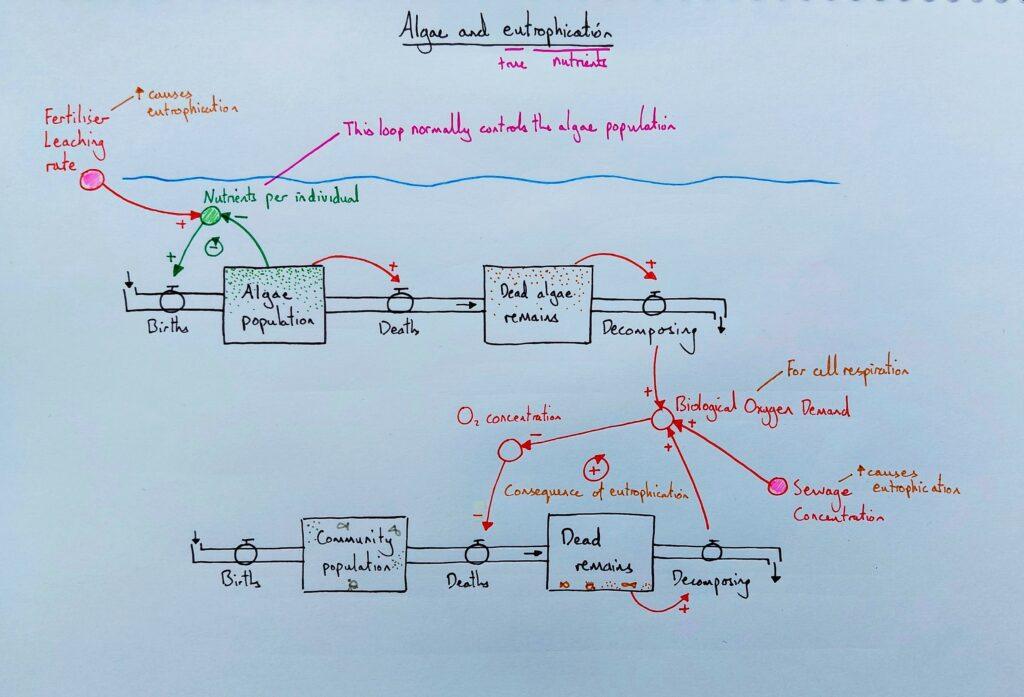 Algae and eutrophication
true nutrients
↑ causes
eutrophication
Fertiliser
Leaching
rate
This loop normally controls the algae population
Nutrients per individual
+
-
-
+
+
+
Algae
population
Dead algae
remains
Births
Deaths
Decomposing
For cell respiration
+
Biological Oxygen Demand
O₂ concentration
-
+
+
+
↑ causes
eutrophication
Consequence of eutrophication
Sewage
Concentration
-
Community
population
Dead
remains
Births
Deaths
Decomposing
+